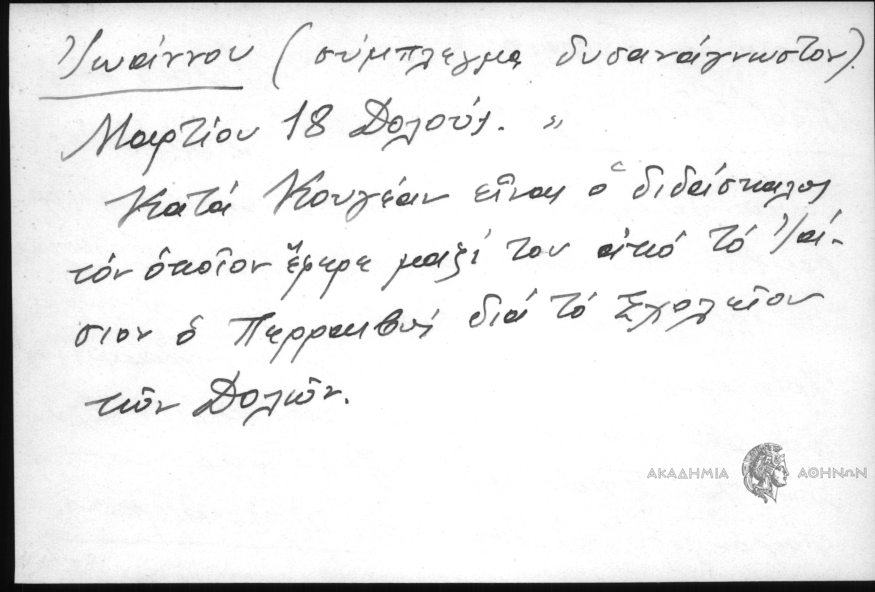 Ἰωάννου (σύμπλεγμα δυσανάγνωστον).
Μαρτίου 18 Δολούς. "
Κατά Κουγέαν εἶναι ὁ διδάσκαλος
τόν ὁποῖον ἔφερε μαζί του ἀπό τό Ἰά-
σιον ὁ Περραιβός διά τό Σχολεῖον
τῶν Δολῶν.
ΑΚΑΔΗΜΙΑ ΑΘΗΝΩΝ